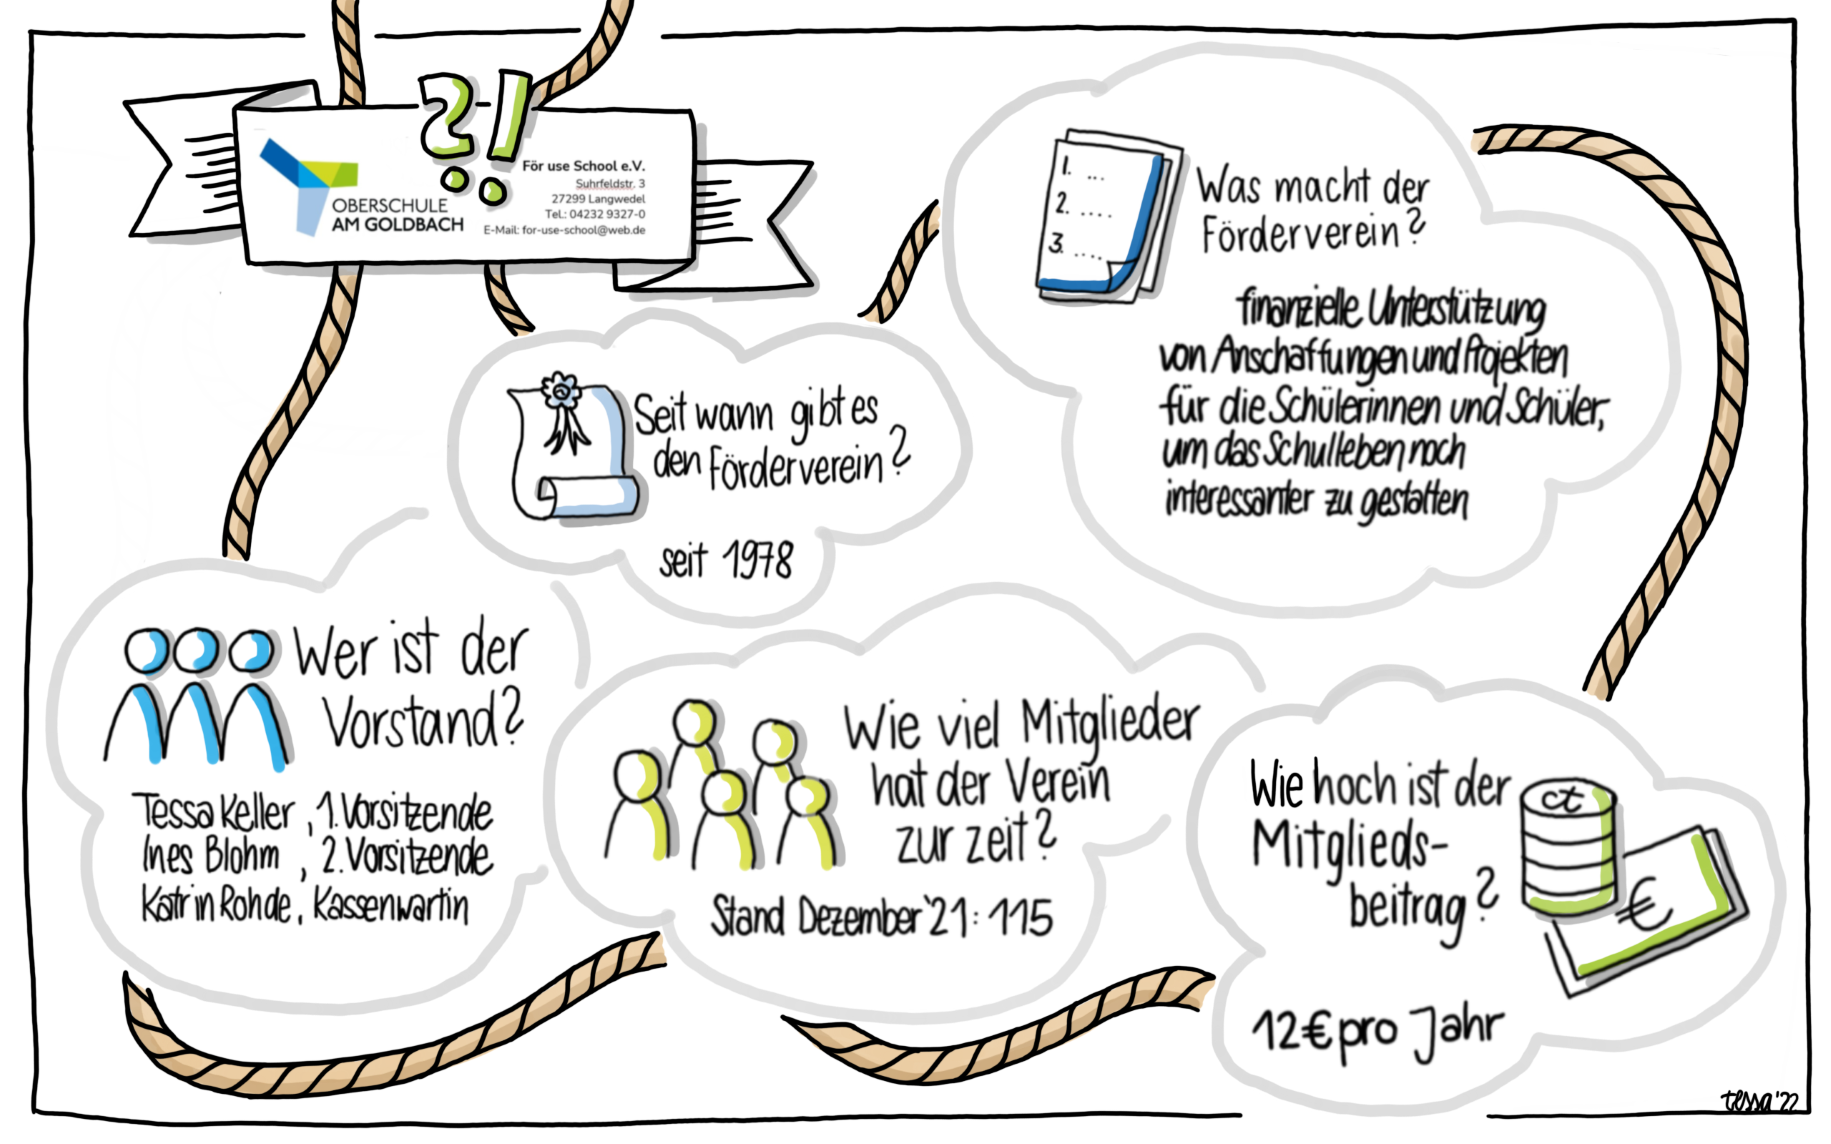 ?!
OBERSCHULE
AM GOLDBACH
För use School e.V.
Suhrfeldstr. 3
27299 Langwedel
Tel.: 04232 9327-0
E-Mail: for-use-school@web.de
1. ...
2. ....
3. .....
Was macht der
Förderverein?
finanzielle Unterstützung
von Anschaffungen und Projekten
für die Schülerinnen und Schüler,
um das Schulleben noch
interessanter zu gestalten
Seit wann gibt es
den Förderverein?
seit 1978
Wer ist der
Vorstand?
Tessa Keller, 1. Vorsitzende
Ines Blohm, 2. Vorsitzende
Katrin Rohde, Kassenwartin
Wie viel Mitglieder
hat der Verein
zur zeit?
Stand Dezember '21: 115
Wie hoch ist der
Mitglieds-
beitrag?
ct
€
12€ pro Jahr
tessa '22